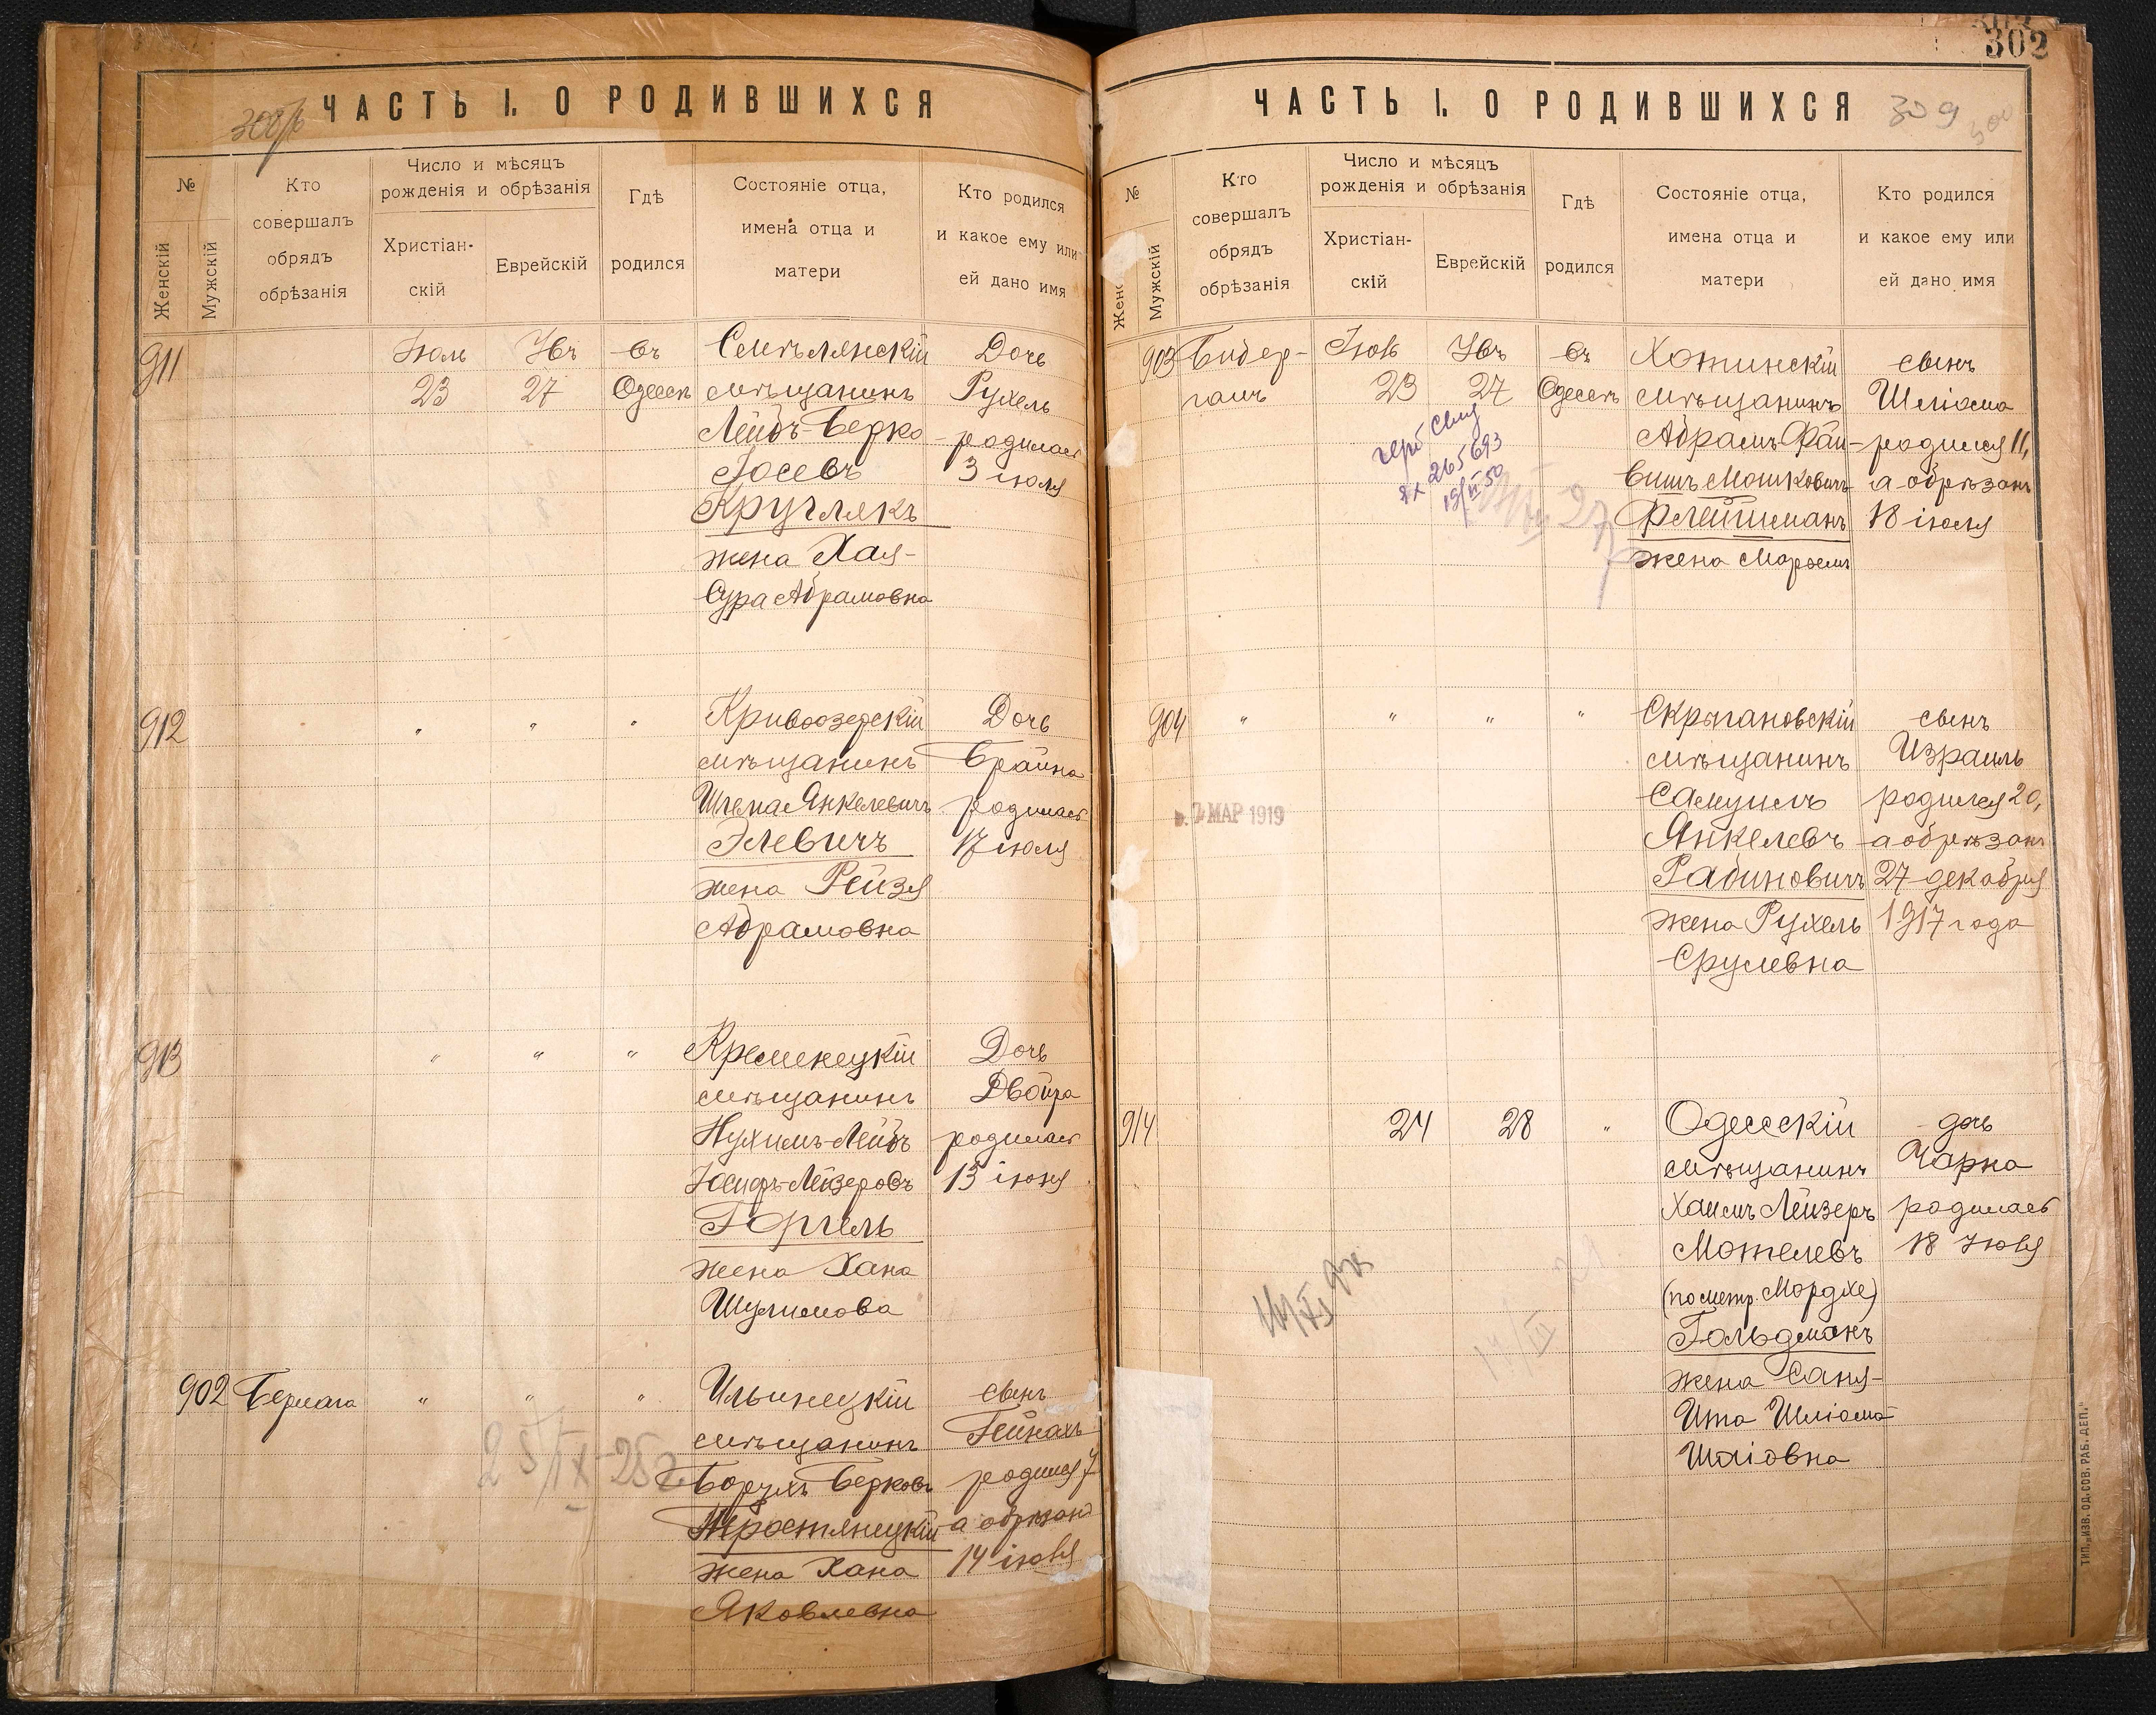 ЧАСТЬ I. О РОДИВШИХСЯ
№
Женскій
Мужскій
Кто
совершалъ
обрядъ
обрѣзанія
Число и мѣсяцъ
рожденія и обрѣзанія
Христіан-
скій
Еврейскій
Гдѣ
родился
Состояніе отца,
имена отца и
матери
Кто родился
и какое ему или
ей дано имя
911
Іюль
23
Увъ
27
въ
Одессѣ
мѣщанинъ
Лейбъ-Берко
Іосевъ
Кругликъ
жена Хая-
Сура Абрамовна
Дочь
Рухель
родилась
3 іюля
912
"
"
"
Кривоозерскій
мѣщанинъ
Шлема Янкелевичъ
Элевичъ
жена Рейзя
Абрамовна
Дочь
Брайна
родилась
17 іюля
913
"
"
"
Кременецкій
мѣщанинъ
Нухимъ-Лейбъ
Іосифъ-Лейзеровъ
Горгель
жена Хана
Шулимова
Дочь
Двойра
родилась
13 іюня
902
Бермана
"
"
"
Ильинецкій
мѣщанинъ
Борухъ Берковъ
Тростянецкій
жена Хана
Яковлевна
сынъ
Гейнахъ
родился 7
а обрѣзанъ
14 іюля
25/IX-25г
302
ЧАСТЬ I. О РОДИВШИХСЯ
309
№
Женс
Мужскій
Кто
совершалъ
обрядъ
обрѣзанія
Число и мѣсяцъ
рожденія и обрѣзанія
Христіан-
скій
Еврейскій
Гдѣ
родился
Состояніе отца,
имена отца и
матери
Кто родился
и какое ему или
ей дано имя
903
Бидер-
манъ
Іюль
23
Увъ
27
въ
Одессѣ
Хотинскій
мѣщанинъ
Абрамъ Фай-
вишъ Мошковичъ
Флейшманъ
жена Маріемъ
сынъ
Шліома
родился 11,
а обрѣзанъ
18 іюля
265693
904
"
"
"
"
мѣщанинъ
Самуилъ
Янкелевъ
Рабиновичъ
жена Рухель
Срулевна
сынъ
Израиль
родился 20,
а обрѣзанъ
27 декабря
1917 года
МАР 1919
914
24
28
"
Одесскій
мѣщанинъ
Хаимъ Лейзеръ
Мотелевъ
(по метр. Мордхе)
Гольдманъ
жена Саня-
Ита Шліома
Шліовна
дочь
Чарна
родилась
18 Іюля
17/III
ТИП. „ИЗВ. ОД. СОВ. РАБ. ДЕП."